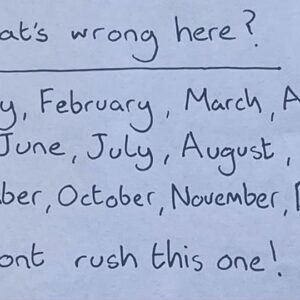 at's wrong here?
y, February, March, A
June, July, August,
ber, October, November, D
ont rush this one!